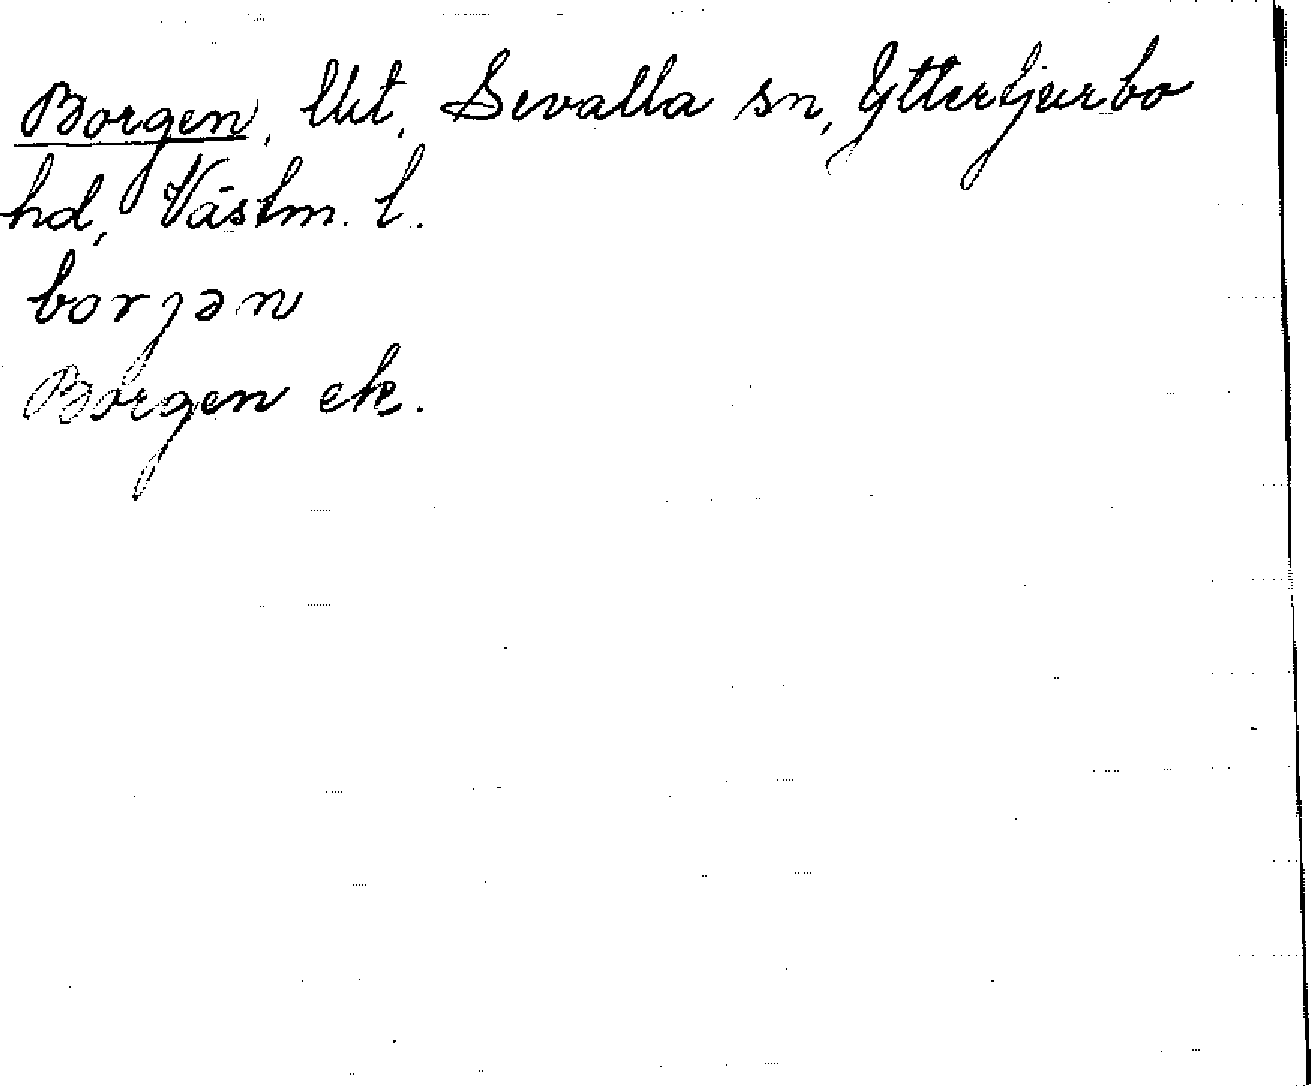 Borgen, lht, Sevalla sn, Yttertjurbo
hd, Västm. l.
borjən
Borgen ek.